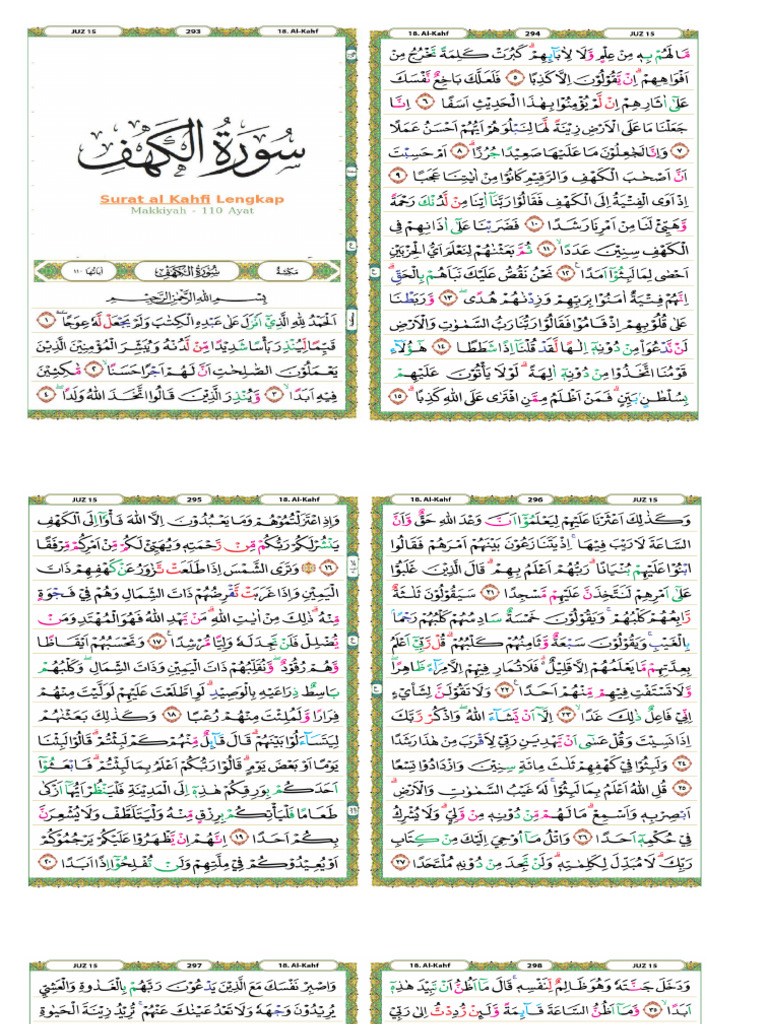 JUZ 15 293 18. Al-Kahf
سُورَةُ الْكَهْفِ
Surat al Kahfi Lengkap
Makkiyah - 110 Ayat
مَكِّيَّةٌ سُورَةُ الْكَهْفِ اٰيَاتُهَا ١١٠
بِسْمِ اللّٰهِ الرَّحْمٰنِ الرَّحِيْمِ
اَلْحَمْدُ لِلّٰهِ الَّذِيْٓ اَنْزَلَ عَلٰى عَبْدِهِ الْكِتٰبَ وَلَمْ يَجْعَلْ لَّهٗ عِوَجًا ۜ ١
قَيِّمًا لِّيُنْذِرَ بَأْسًا شَدِيْدًا مِّنْ لَّدُنْهُ وَيُبَشِّرَ الْمُؤْمِنِيْنَ الَّذِيْنَ
يَعْمَلُوْنَ الصّٰلِحٰتِ اَنَّ لَهُمْ اَجْرًا حَسَنًاۙ ٢ مَّاكِثِيْنَ
فِيْهِ اَبَدًاۙ ٣ وَّيُنْذِرَ الَّذِيْنَ قَالُوا اتَّخَذَ اللّٰهُ وَلَدًاۖ ٤
18. Al-Kahf 294 JUZ 15
مَا لَهُمْ بِهٖ مِنْ عِلْمٍ وَّلَا لِاٰبَاۤىِٕهِمْۗ كَبُرَتْ كَلِمَةً تَخْرُجُ مِنْ
اَفْوَاهِهِمْۗ اِنْ يَّقُوْلُوْنَ اِلَّا كَذِبًا ٥ فَلَعَلَّكَ بَاخِعٌ نَّفْسَكَ
عَلٰٓى اٰثَارِهِمْ اِنْ لَّمْ يُؤْمِنُوْا بِهٰذَا الْحَدِيْثِ اَسَفًا ٦ اِنَّا
جَعَلْنَا مَا عَلَى الْاَرْضِ زِيْنَةً لَّهَا لِنَبْلُوَهُمْ اَيُّهُمْ اَحْسَنُ عَمَلًا
٧ وَاِنَّا لَجَاعِلُوْنَ مَا عَلَيْهَا صَعِيْدًا جُرُزًاۗ ٨ اَمْ حَسِبْتَ
اَنَّ اَصْحٰبَ الْكَهْفِ وَالرَّقِيْمِ كَانُوْا مِنْ اٰيٰتِنَا عَجَبًا ٩
اِذْ اَوَى الْفِتْيَةُ اِلَى الْكَهْفِ فَقَالُوْا رَبَّنَآ اٰتِنَا مِنْ لَّدُنْكَ رَحْمَةً
وَّهَيِّئْ لَنَا مِنْ اَمْرِنَا رَشَدًا ١٠ فَضَرَبْنَا عَلٰٓى اٰذَانِهِمْ فِى
الْكَهْفِ سِنِيْنَ عَدَدًاۙ ١١ ثُمَّ بَعَثْنٰهُمْ لِنَعْلَمَ اَيُّ الْحِزْبَيْنِ
اَحْصٰى لِمَا لَبِثُوْٓا اَمَدًا ١٢ نَحْنُ نَقُصُّ عَلَيْكَ نَبَاَهُمْ بِالْحَقِّۗ
اِنَّهُمْ فِتْيَةٌ اٰمَنُوْا بِرَبِّهِمْ وَزِدْنٰهُمْ هُدًىۖ ١٣ وَّرَبَطْنَا
عَلٰى قُلُوْبِهِمْ اِذْ قَامُوْا فَقَالُوْا رَبُّنَا رَبُّ السَّمٰوٰتِ وَالْاَرْضِ
لَنْ نَّدْعُوَا۟ مِنْ دُوْنِهٖٓ اِلٰهًا لَّقَدْ قُلْنَآ اِذًا شَطَطًا ١٤ هٰٓؤُلَاۤءِ
قَوْمُنَا اتَّخَذُوْا مِنْ دُوْنِهٖٓ اٰلِهَةًۗ لَوْلَا يَأْتُوْنَ عَلَيْهِمْ
بِسُلْطٰنٍۢ بَيِّنٍۗ فَمَنْ اَظْلَمُ مِمَّنِ افْتَرٰى عَلَى اللّٰهِ كَذِبًاۗ ١٥
JUZ 15 295 18. Al-Kahf
وَاِذِ اعْتَزَلْتُمُوْهُمْ وَمَا يَعْبُدُوْنَ اِلَّا اللّٰهَ فَأْوٗٓا اِلَى الْكَهْفِ
يَنْشُرْ لَكُمْ رَبُّكُمْ مِّنْ رَّحْمَتِهٖ وَيُهَيِّئْ لَكُمْ مِّنْ اَمْرِكُمْ مِّرْفَقًا
١٦ وَتَرَى الشَّمْسَ اِذَا طَلَعَتْ تَّزٰوَرُ عَنْ كَهْفِهِمْ ذَاتَ
الْيَمِيْنِ وَاِذَا غَرَبَتْ تَّقْرِضُهُمْ ذَاتَ الشِّمَالِ وَهُمْ فِيْ فَجْوَةٍ
مِّنْهُۗ ذٰلِكَ مِنْ اٰيٰتِ اللّٰهِۗ مَنْ يَّهْدِ اللّٰهُ فَهُوَ الْمُهْتَدِ وَمَنْ
يُّضْلِلْ فَلَنْ تَجِدَ لَهٗ وَلِيًّا مُّرْشِدًا ١٧ وَتَحْسَبُهُمْ اَيْقَاظًا
وَّهُمْ رُقُوْدٌ ۖ وَّنُقَلِّبُهُمْ ذَاتَ الْيَمِيْنِ وَذَاتَ الشِّمَالِ ۖ وَكَلْبُهُمْ
بَاسِطٌ ذِرَاعَيْهِ بِالْوَصِيْدِۗ لَوِ اطَّلَعْتَ عَلَيْهِمْ لَوَلَّيْتَ مِنْهُمْ
فِرَارًا وَّلَمُلِئْتَ مِنْهُمْ رُعْبًا ١٨ وَكَذٰلِكَ بَعَثْنٰهُمْ
لِيَتَسَاۤءَلُوْا بَيْنَهُمْۗ قَالَ قَاۤىِٕلٌ مِّنْهُمْ كَمْ لَبِثْتُمْۗ قَالُوْا لَبِثْنَا
يَوْمًا اَوْ بَعْضَ يَوْمٍۗ قَالُوْا رَبُّكُمْ اَعْلَمُ بِمَا لَبِثْتُمْۗ فَابْعَثُوْٓا
اَحَدَكُمْ بِوَرِقِكُمْ هٰذِهٖٓ اِلَى الْمَدِيْنَةِ فَلْيَنْظُرْ اَيُّهَآ اَزْكٰى
طَعَامًا فَلْيَأْتِكُمْ بِرِزْقٍ مِّنْهُ وَلْيَتَلَطَّفْ وَلَا يُشْعِرَنَّ
بِكُمْ اَحَدًا ١٩ اِنَّهُمْ اِنْ يَّظْهَرُوْا عَلَيْكُمْ يَرْجُمُوْكُمْ
اَوْ يُعِيْدُوْكُمْ فِيْ مِلَّتِهِمْ وَلَنْ تُفْلِحُوْٓا اِذًا اَبَدًا ٢٠
18. Al-Kahf 296 JUZ 15
وَكَذٰلِكَ اَعْثَرْنَا عَلَيْهِمْ لِيَعْلَمُوْٓا اَنَّ وَعْدَ اللّٰهِ حَقٌّ وَّاَنَّ
السَّاعَةَ لَا رَيْبَ فِيْهَاۚ اِذْ يَتَنَازَعُوْنَ بَيْنَهُمْ اَمْرَهُمْ فَقَالُوا
ابْنُوْا عَلَيْهِمْ بُنْيَانًاۗ رَبُّهُمْ اَعْلَمُ بِهِمْۗ قَالَ الَّذِيْنَ غَلَبُوْا
عَلٰٓى اَمْرِهِمْ لَنَتَّخِذَنَّ عَلَيْهِمْ مَّسْجِدًا ٢١ سَيَقُوْلُوْنَ ثَلٰثَةٌ
رَّابِعُهُمْ كَلْبُهُمْۚ وَيَقُوْلُوْنَ خَمْسَةٌ سَادِسُهُمْ كَلْبُهُمْ رَجْمًاۢ
بِالْغَيْبِۚ وَيَقُوْلُوْنَ سَبْعَةٌ وَّثَامِنُهُمْ كَلْبُهُمْۗ قُلْ رَّبِّيْٓ اَعْلَمُ
بِعِدَّتِهِمْ مَّا يَعْلَمُهُمْ اِلَّا قَلِيْلٌ ۗ فَلَا تُمَارِ فِيْهِمْ اِلَّا مِرَاۤءً ظَاهِرًاۖ
وَّلَا تَسْتَفْتِ فِيْهِمْ مِّنْهُمْ اَحَدًا ٢٢ وَلَا تَقُوْلَنَّ لِشَا۟يْءٍ
اِنِّيْ فَاعِلٌ ذٰلِكَ غَدًاۙ ٢٣ اِلَّآ اَنْ يَّشَاۤءَ اللّٰهُ ۖ وَاذْكُرْ رَّبَّكَ
اِذَا نَسِيْتَ وَقُلْ عَسٰٓى اَنْ يَّهْدِيَنِ رَبِّيْ لِاَقْرَبَ مِنْ هٰذَا رَشَدًا
٢٤ وَلَبِثُوْا فِيْ كَهْفِهِمْ ثَلٰثَ مِائَةٍ سِنِيْنَ وَازْدَادُوْا تِسْعًا
٢٥ قُلِ اللّٰهُ اَعْلَمُ بِمَا لَبِثُوْاۚ لَهٗ غَيْبُ السَّمٰوٰتِ وَالْاَرْضِۗ
اَبْصِرْ بِهٖ وَاَسْمِعْۗ مَا لَهُمْ مِّنْ دُوْنِهٖ مِنْ وَّلِيٍّۗ وَلَا يُشْرِكُ
فِيْ حُكْمِهٖٓ اَحَدًا ٢٦ وَاتْلُ مَآ اُوْحِيَ اِلَيْكَ مِنْ كِتَابِ
رَبِّكَۗ لَا مُبَدِّلَ لِكَلِمٰتِهٖۗ وَلَنْ تَجِدَ مِنْ دُوْنِهٖ مُلْتَحَدًا ٢٧
JUZ 15 297 18. Al-Kahf
وَاصْبِرْ نَفْسَكَ مَعَ الَّذِيْنَ يَدْعُوْنَ رَبَّهُمْ بِالْغَدٰوةِ وَالْعَشِيِّ
يُرِيْدُوْنَ وَجْهَهٗ وَلَا تَعْدُ عَيْنٰكَ عَنْهُمْۚ تُرِيْدُ زِيْنَةَ الْحَيٰوةِ
18. Al-Kahf 298 JUZ 15
وَدَخَلَ جَنَّتَهٗ وَهُوَ ظَالِمٌ لِّنَفْسِهٖۚ قَالَ مَآ اَظُنُّ اَنْ تَبِيْدَ هٰذِهٖٓ
اَبَدًاۙ ٣٥ وَّمَآ اَظُنُّ السَّاعَةَ قَاۤىِٕمَةً وَّلَىِٕنْ رُّدِدْتُّ اِلٰى رَبِّيْ